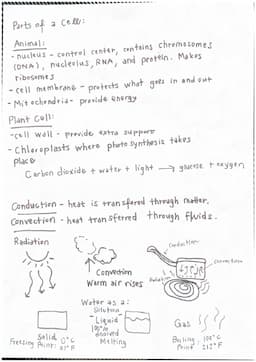 Parts of a Cell:
Animal:
- nucleus - control center, contains chromosomes
(DNA), nucleolus, RNA, and protein. Makes
ribosomes
- cell membrane - protects what goes in and out
- Mitochondria - provide energy
Plant Cell:
- cell wall - provide extra support
- Chloroplasts where photo synthesis takes
place
Carbon dioxide + water + light → glucose + oxygen
Conduction - heat is transfered through matter.
Convection - heat transferred through fluids.
Radiation
Convection
Warm air rises
Conduction
Convection
Radiation
Water as a:
Solution
Liquid
Solid
Freezing Point: 0°C
Melting
Gas
Boiling Point 100°C
212°F